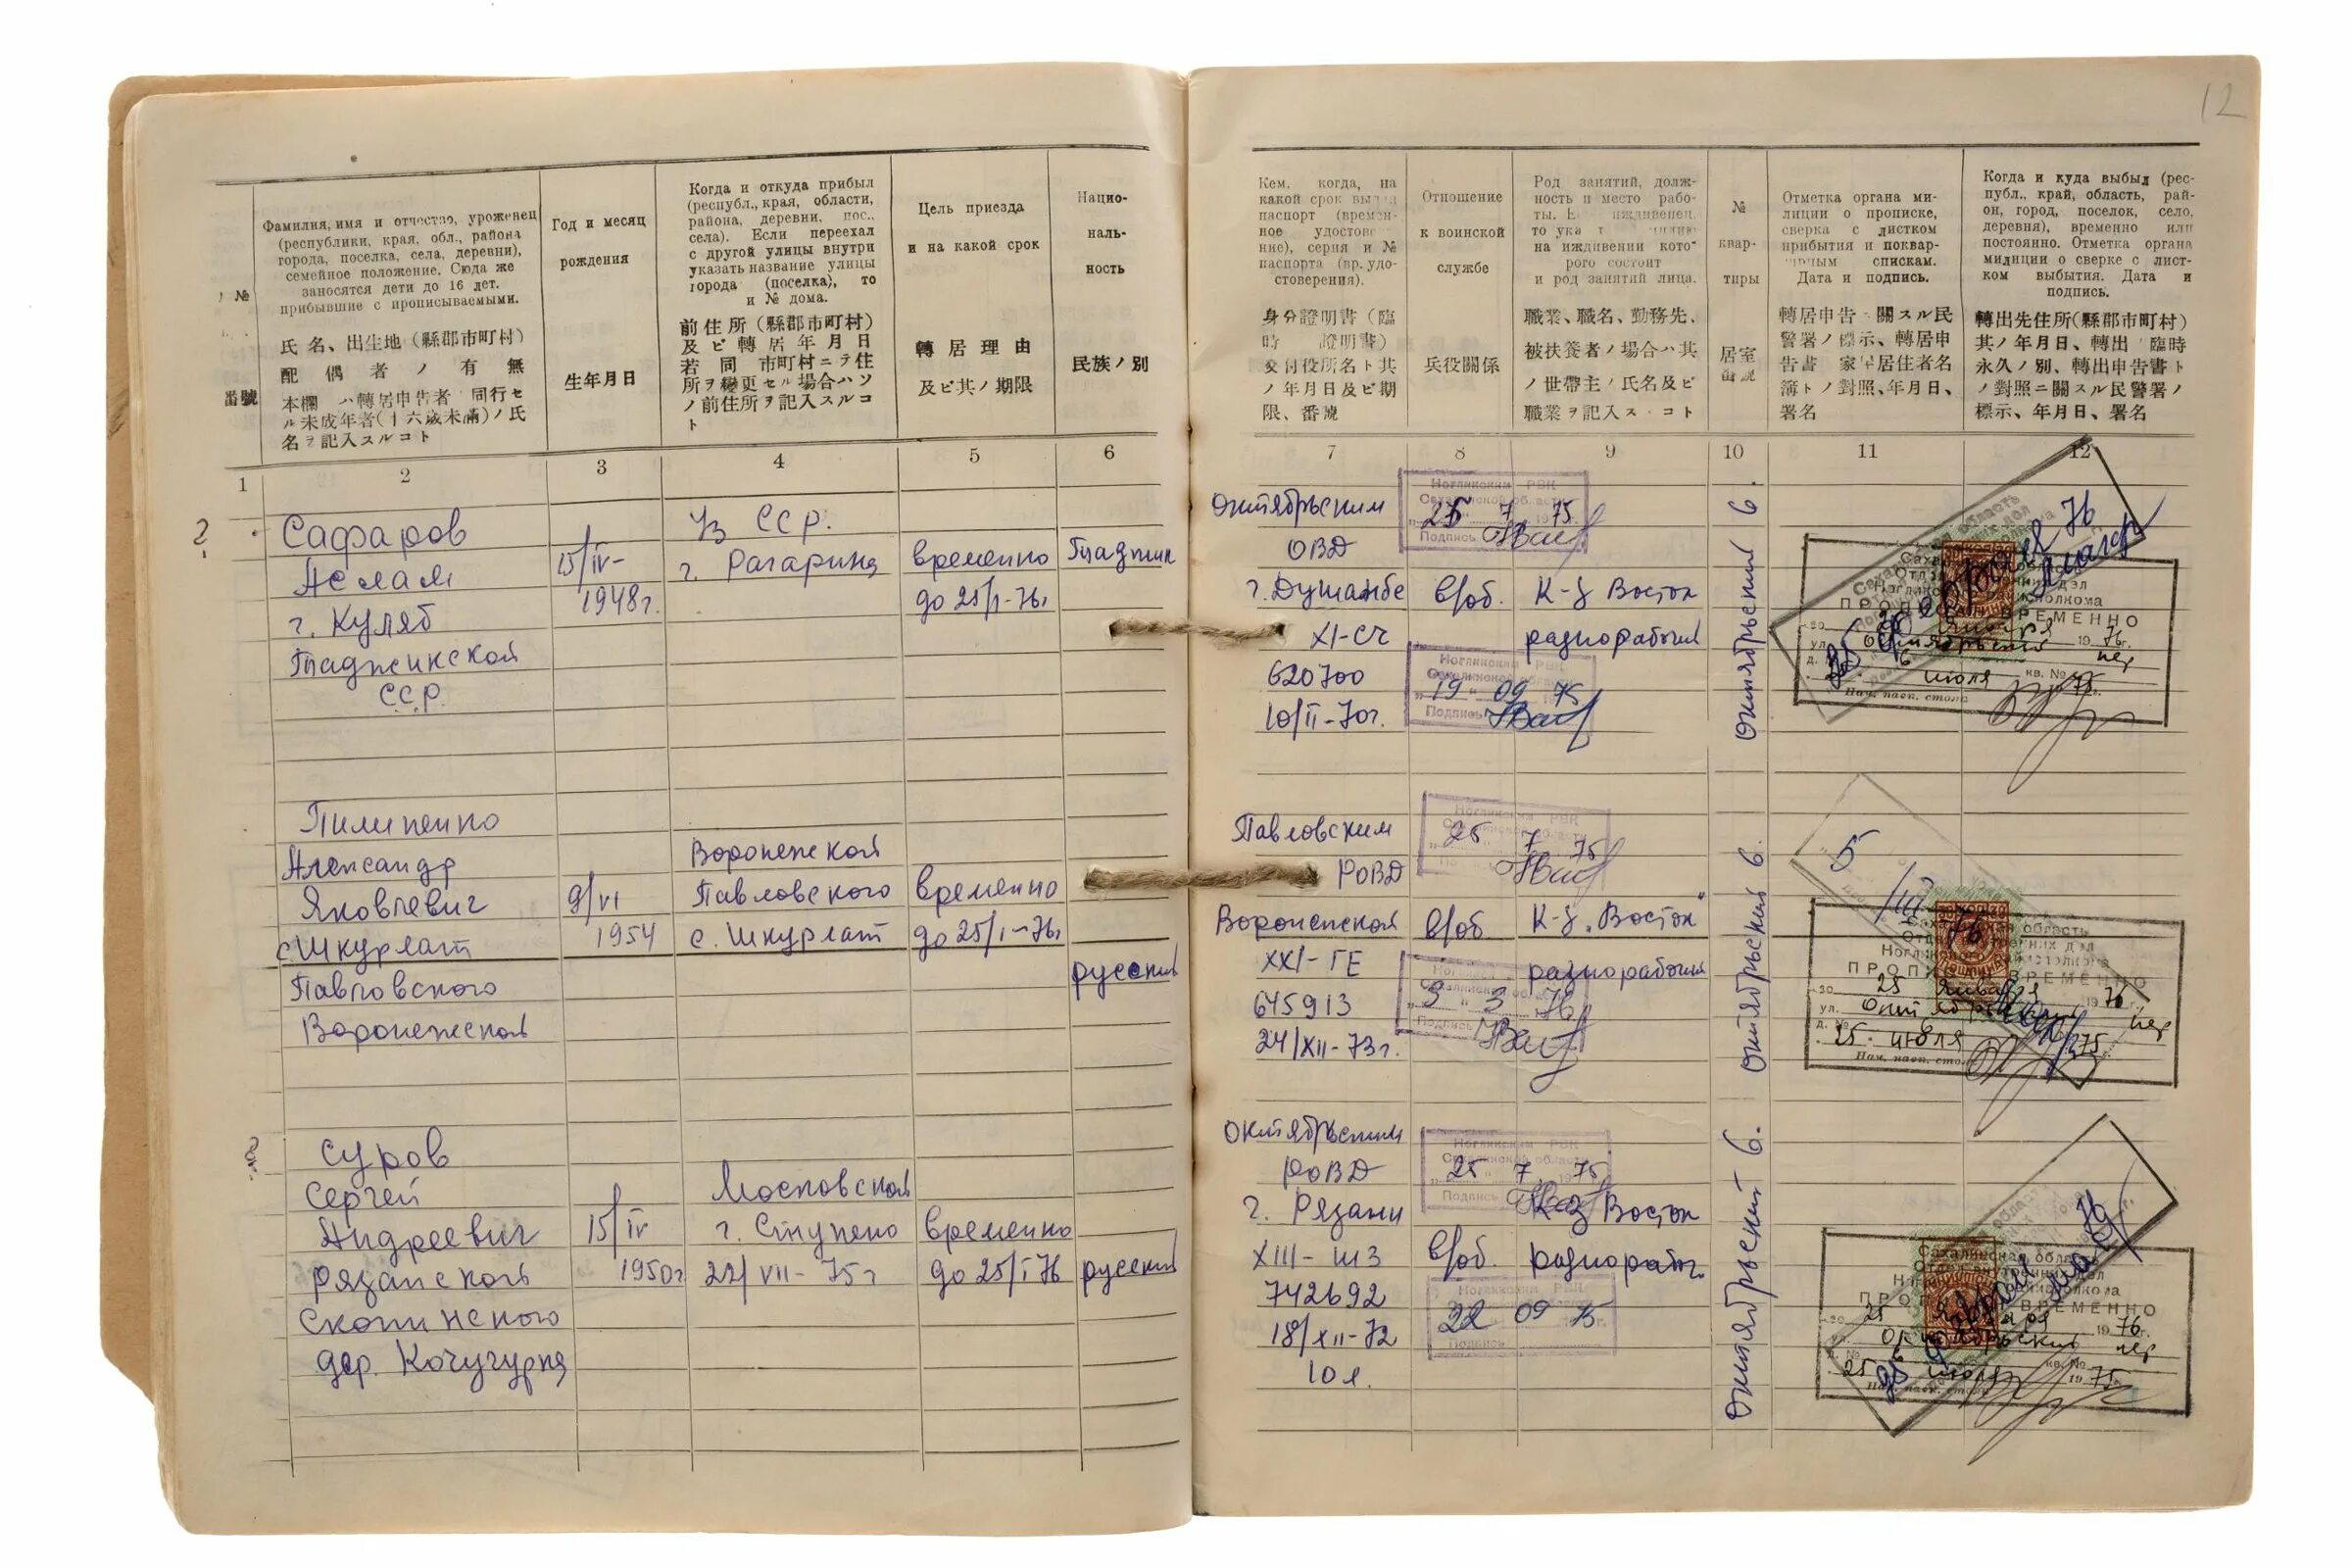 12
№
番號
Фамилия, имя и отчество, уроженец
(республики, края, обл., района
города, поселка, села, деревни),
семейное положение. Сюда же
заносятся дети до 16 лет.
прибывшие с прописываемыми.
氏名、出生地（縣郡市町村）
配偶者ノ有無
本欄ハ轉居申告者 同行セ
ル未成年者(十六歳未滿)ノ氏
名ヲ記入スルコト
Год и месяц
рождения
生年月日
Когда и откуда прибыл
(республ., края, области,
района, деревни, пос.,
села). Если переехал
с другой улицы внутри
указать название улицы
города (поселка), то
и № дома.
前住所（縣郡市町村）
及ビ轉居年月日
若 同 市町村ニテ住
所ヲ變更セル場合ハソ
ノ前住所ヲ記入スルコ
ト
Цель приезда
и на какой срок
轉居理由
及ビ其ノ期限
Нацио-
наль-
ность
民族ノ別
Кем, когда, на
какой срок выдан
паспорт (времен-
ное удостове-
ние), серия и №
паспорта (вр. удо-
стоверения).
身分證明書（臨
時 證明書）
交付役所名ト其
ノ年月日及ビ期
限、番號
Отношение
к воинской
службе
兵役關係
Род занятий, долж-
ность и место рабо-
ты. Е иждивенец,
то ука
на иждивении кото-
рого состоит
и род занятий лица.
職業、職名、勤務先、
被扶養者ノ場合ハ其
ノ世帶主ノ氏名及ビ
職業ヲ記入ス コト
№
квар-
тиры
居室
番號
Отметка органа ми-
лиции о прописке,
сверка с листком
прибытия и поквар-
тирным спискам.
Дата и подпись.
轉居申告 關スル民
警署ノ標示、轉居申
告書 家 居住者名
簿トノ對照、年月日、
署名
Когда и куда выбыл (рес-
публ., край, область, рай-
он, город, поселок, село,
деревня), временно или
постоянно. Отметка органа
милиции о сверке с лист-
ком выбытия. Дата и
подпись.
轉出先住所(縣郡市町村)
其ノ年月日、轉出 臨時
永久ノ別、轉出申告書ト
ノ對照ニ關スル民警署ノ
標示、年月日、署名
1 2 3 4 5 6 7 8 9 10 11 12
?
Сафаров
Аслам
г. Куляб
Таджикской
ССР
15/IV-
1948г.
Уз ССР.
г. Гагарина
временно
до 25/I-76г
Таджик
Октябрьским
ОВД
г. Душанбе
XI-СЧ
620700
10/II-70г.
Ногликским РВК
Сахалинской области
25 7 1975
Подпись
в/об.
Ногликским РВК
Сахалинской области
19 09 75
Подпись
К-з Восток
разнорабочий
Октябрьский 6.
Сахалинская область
Отдел внутренних дел
Ногликского райисполкома
ПРОПИСАН ВРЕМЕННО
до 25 января 1976г.
ул. Октябрьский пер
д. № 6 кв. №
25 июля 75
Нач. пасп. стола
Пилипенко
Александр
Яковлевич
с Шкурлат
Павловского
Воронежской
9/VI
1954
Воронежской
Павловского
с. Шкурлат
временно
до 25/I-76г
русский
Павловским
РОВД
Воронежской
XXI-ГЕ
645913
24/XII-73г.
Ногликским РВК
25 7 75
в/об
Ногликским РВК
Сахалинской области
3 3 76
Подпись
К-з „Восток"
разнорабочий
Октябрьский 6.
5/III
76
Сахалинская область
Отдел внутренних дел
Ногликского райисполкома
ПРОПИСАН ВРЕМЕННО
до 25 января 1976
ул. Октябрьский пер
д. №
25 июля 75
Нач. пасп. стола
?
Суров
Сергей
Андреевич
Рязанской
Скопинского
дер. Кочугурка
15/IV
1950г
Московская
г. Ступено
22/VII-75г
временно
до 25/I 76
русский
Октябрьским
РОВД
г. Рязани
XIII-ШЗ
742692
18/XII-72
10 л.
Ногликским РВК
Сахалинской области
25 7 1975
Подпись
в/об.
Ногликским РВК
22 09 75
Подпись
К-з Восток
разнорабоч.
Октябрьский 6.
Сахалинская область
Отдел внутренних дел
Ногликского райисполкома
ПРОПИСАН ВРЕМЕННО
до 25 января 1976г.
Октябрьский пер
д. № 6 кв. №
25 июля 1975
Нач. пасп. стола